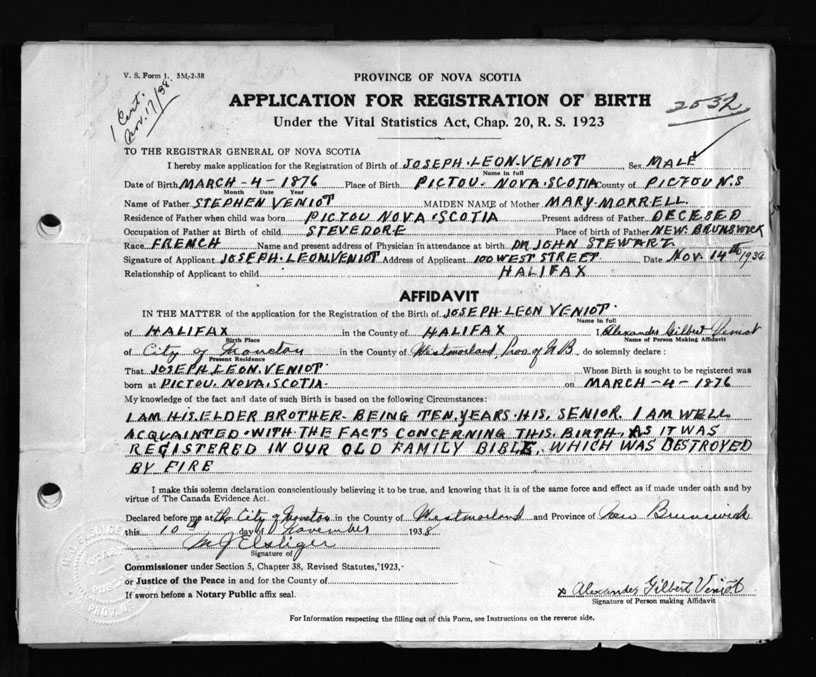 V. S. Form 1. 5M-2-38
1 Cert.
Nov. 17/38.
PROVINCE OF NOVA SCOTIA
APPLICATION FOR REGISTRATION OF BIRTH
2532
Under the Vital Statistics Act, Chap. 20, R. S. 1923
TO THE REGISTRAR GENERAL OF NOVA SCOTIA
I hereby make application for the Registration of Birth of JOSEPH.LEON.VENIOT Sex MALE
Name in full
Date of Birth MARCH-4-1876 Place of Birth PICTOU. NOVA.SCOTIA County of PICTOU N.S
Month Date Year
Name of Father STEPHEN VENIOT MAIDEN NAME of Mother MARY-MORRELL.
Residence of Father when child was born PICTOU NOVA.SCOTIA Present address of Father DECESED
Occupation of Father at Birth of child STEVEDORE Place of birth of Father NEW.BRUNSWICK
Race FRENCH Name and present address of Physician in attendance at birth DR JOHN STEWART.
Signature of Applicant JOSEPH.LEON.VENIOT Address of Applicant 100 WEST STREET Date Nov. 14th 1938
Relationship of Applicant to child HALIFAX
AFFIDAVIT
IN THE MATTER of the application for the Registration of the Birth of JOSEPH-LEON VENIOT.
Name in full
of HALIFAX in the County of HALIFAX I, Alexander Gilbert Veniot
Birth Place Name of Person Making Affidavit
of City of Moncton in the County of Westmorland, Prov of N B, do solemnly declare :
Present Residence
That JOSEPH.LEON.VENIOT. Whose Birth is sought to be registered was
born at PICTOU.NOVA.SCOTIA. on MARCH-4-1876
My knowledge of the fact and date of such Birth is based on the following Circumstances:
I AM HIS.ELDER BROTHER- BEING TEN.YEARS.HIS, SENIOR. I AM WELL
ACQUAINTED.WITH.THE FACTS CONCERNING THIS.BIRTH, AS IT WAS
REGISTERED IN OUR OLD FAMILY BIBLE. WHICH WAS DESTROYED
BY FIRE
I make this solemn declaration conscientiously believing it to be true, and knowing that it is of the same force and effect as if made under oath and by
virtue of The Canada Evidence Act.
Declared before me at the City of Moncton in the County of Westmorland and Province of New Brunswick
this 10th day of November 1938
Signature of
Commissioner under Section 5, Chapter 38, Revised Statutes, 1923,
or Justice of the Peace in and for the County of
If sworn before a Notary Public affix seal.
x Alexander Gilbert Veniot
Signature of Person making Affidavit
For Information respecting the filling out of this Form, see Instructions on the reverse side.